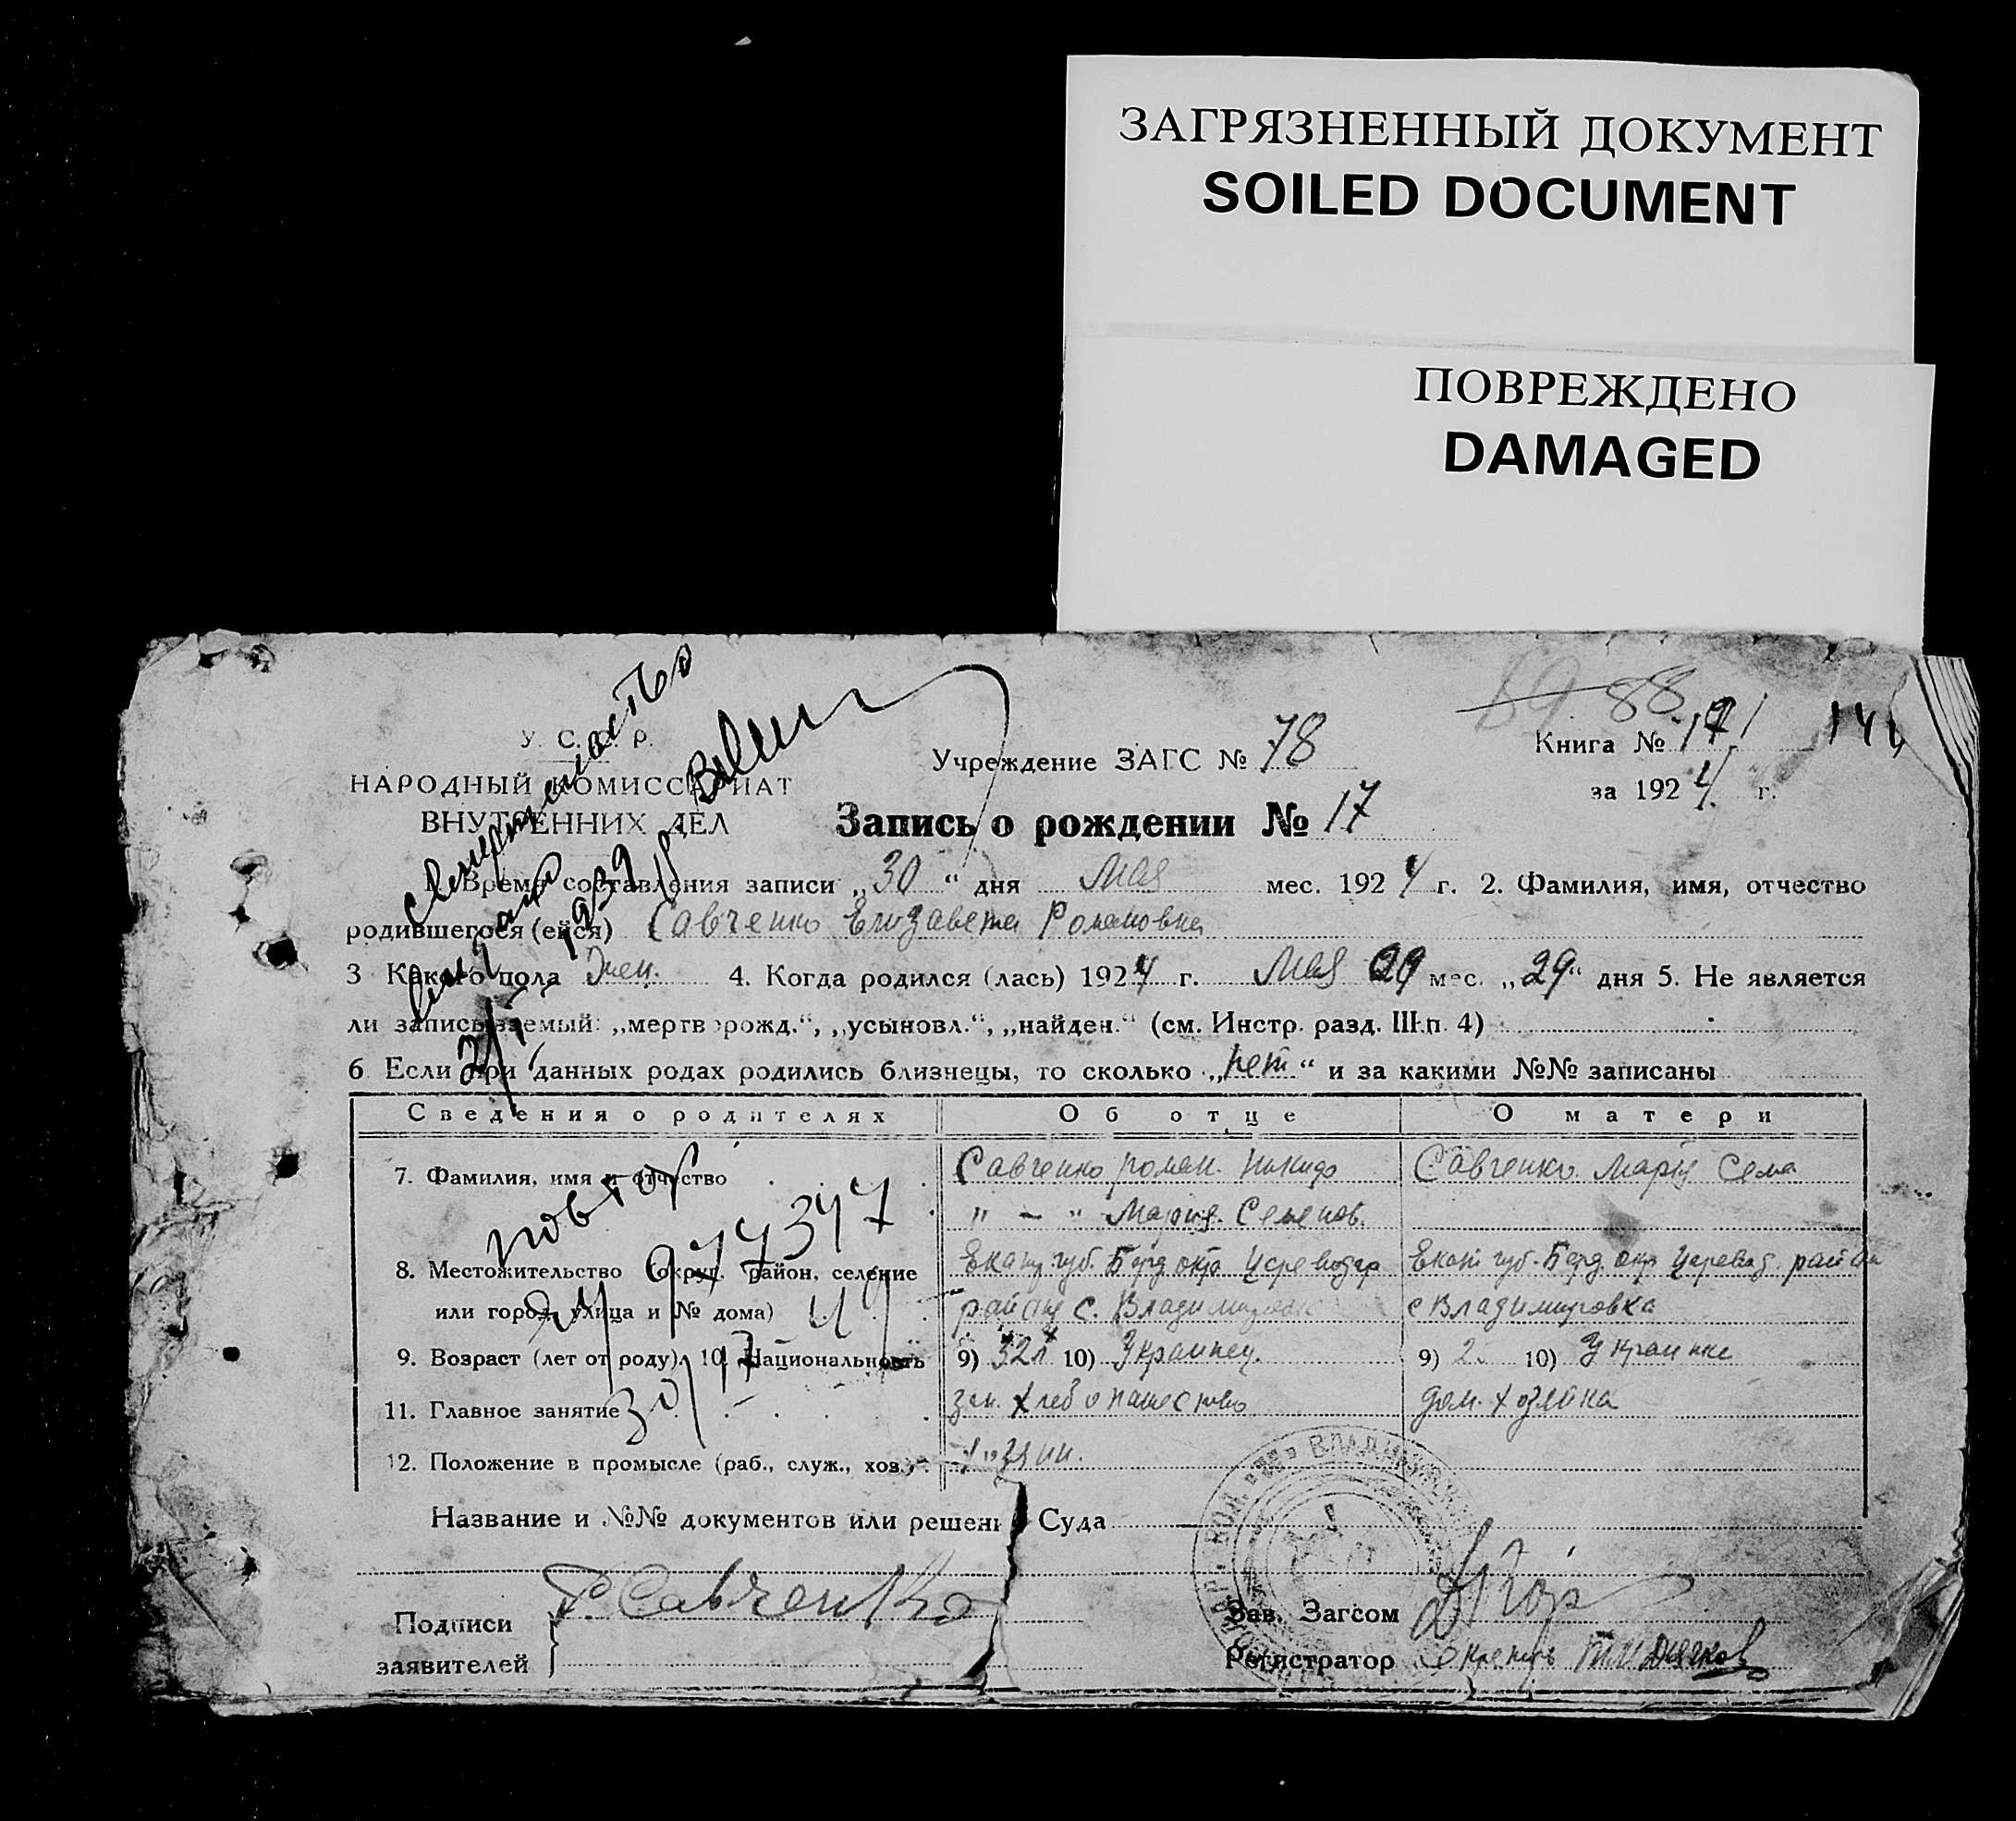 ЗАГРЯЗНЕННЫЙ ДОКУМЕНТ
SOILED DOCUMENT
ПОВРЕЖДЕНО
DAMAGED
89 88
У. С. С. Р.
Учреждение ЗАГС № 78
Книга № 171
НАРОДНЫЙ КОМИССАРИАТ
за 1924 г.
ВНУТРЕННИХ ДЕЛ
Запись о рождении № 17
1. Время составления записи „30“ дня Мая мес. 1924 г. 2. Фамилия, имя, отчество
родившегося (ейся) Савченко Елизавета Романовна
3 Какого пола Жен. 4. Когда родился (лась) 1924 г. Мая 29 мес. „29“ дня 5. Не является
ли записываемый: „мертворожд.“, „усыновл.“, „найден.“ (см. Инстр. разд. III п. 4)
6 Если при данных родах родились близнецы, то сколько „нет“ и за какими №№ записаны
Сведения о родителях Об отце О матери
7. Фамилия, имя и отчество Савченко Роман. Савченко Мария Сема
" — " Мария. Семенов.
8. Местожительство (округ, район, селение Екат. губ. Берд. Екат губ. Берд. окр Царевод. район
или город, улица и № дома) район с. с Владимировка
9. Возраст (лет от роду). 10. Национальность 9) 32 л 10) Украинец. 9) 10) Украинка
11. Главное занятие зем. хлебопашество дом. хозяйка
12. Положение в промысле (раб., служ., хоз.)
Название и №№ документов или решени Суда
Подписи Р. Савченко
заявителей
Зав. Загсом
Регистратор
повтор
977397
1939